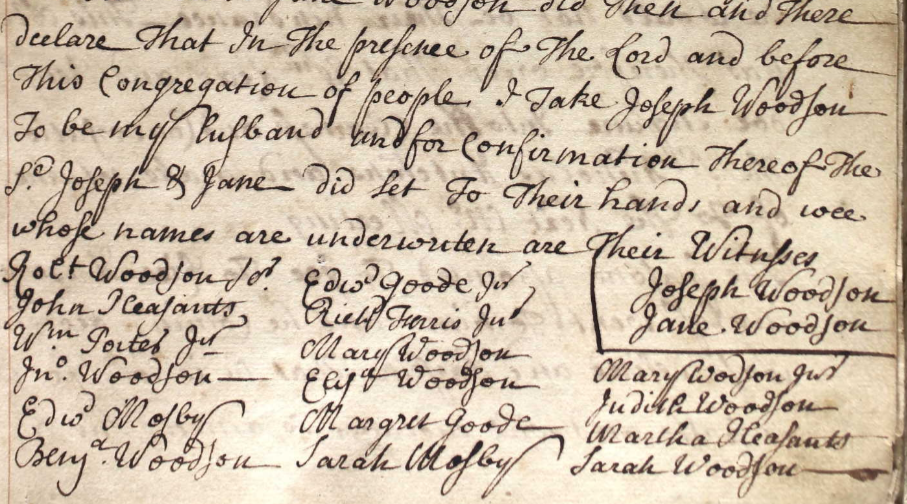 Woodson did then and there
declare that In the presence of the Lord and before
this Congregation of people I Take Joseph Woodson
To be my Husband and for Confirmation thereof the
sd. Joseph & Jane did set To their hands and wee
whose names are underwriten are their Witnesses
Robt Woodson Sor.
John Pleasants
Wm Porter Jur
Jno. Woodson
Edwd Mosby
Benja. Woodson
Edwd Goode Jur
Richd Ferris Jur
Mary Woodson
Elizat Woodson
Margret Goode
Sarah Mosby
Joseph Woodson
Jane Woodson
Mary Wodson Jur
Judith Woodson
Martha Pleasants
Sarah Woodson